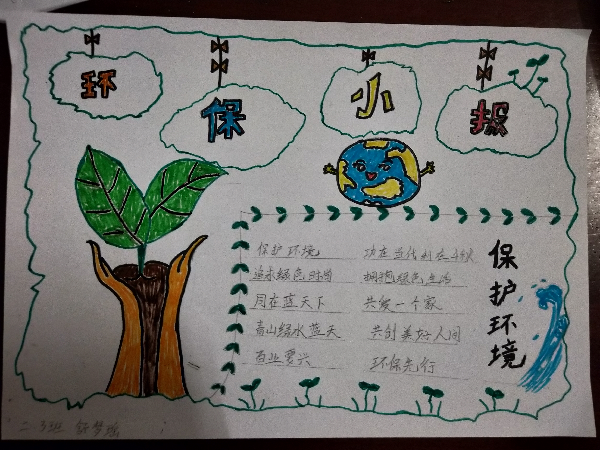 环保小报
保护环境 功在当代利在千秋
追求绿色时尚 拥抱绿色生活
同在蓝天下 共爱一个家
青山绿水蓝天 共创美好人间
百业要兴 环保先行
保护环境
二.3班